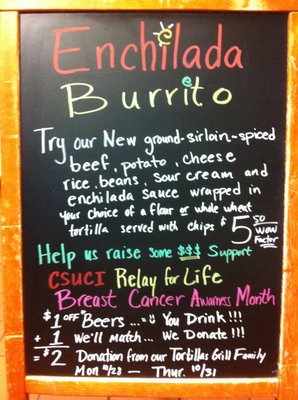 Enchilada
Burrito
Try our New ground-sirloin-spiced
beef, potato, cheese
rice, beans, sour cream and
enchilada sauce wrapped in
your choice of a flour or whole wheat
tortilla served with chips $5.50
Wow
Factor
Help us raise some $$$ Support
CSUCI Relay for Life
Breast Cancer Awarness Month
$1 OFF Beers ... = You Drink!!!
+ 1 We'll match... We Donate!!!
= $2 Donation from our Tortillas Grill Family
Mon 10/28 — Thur. 10/31